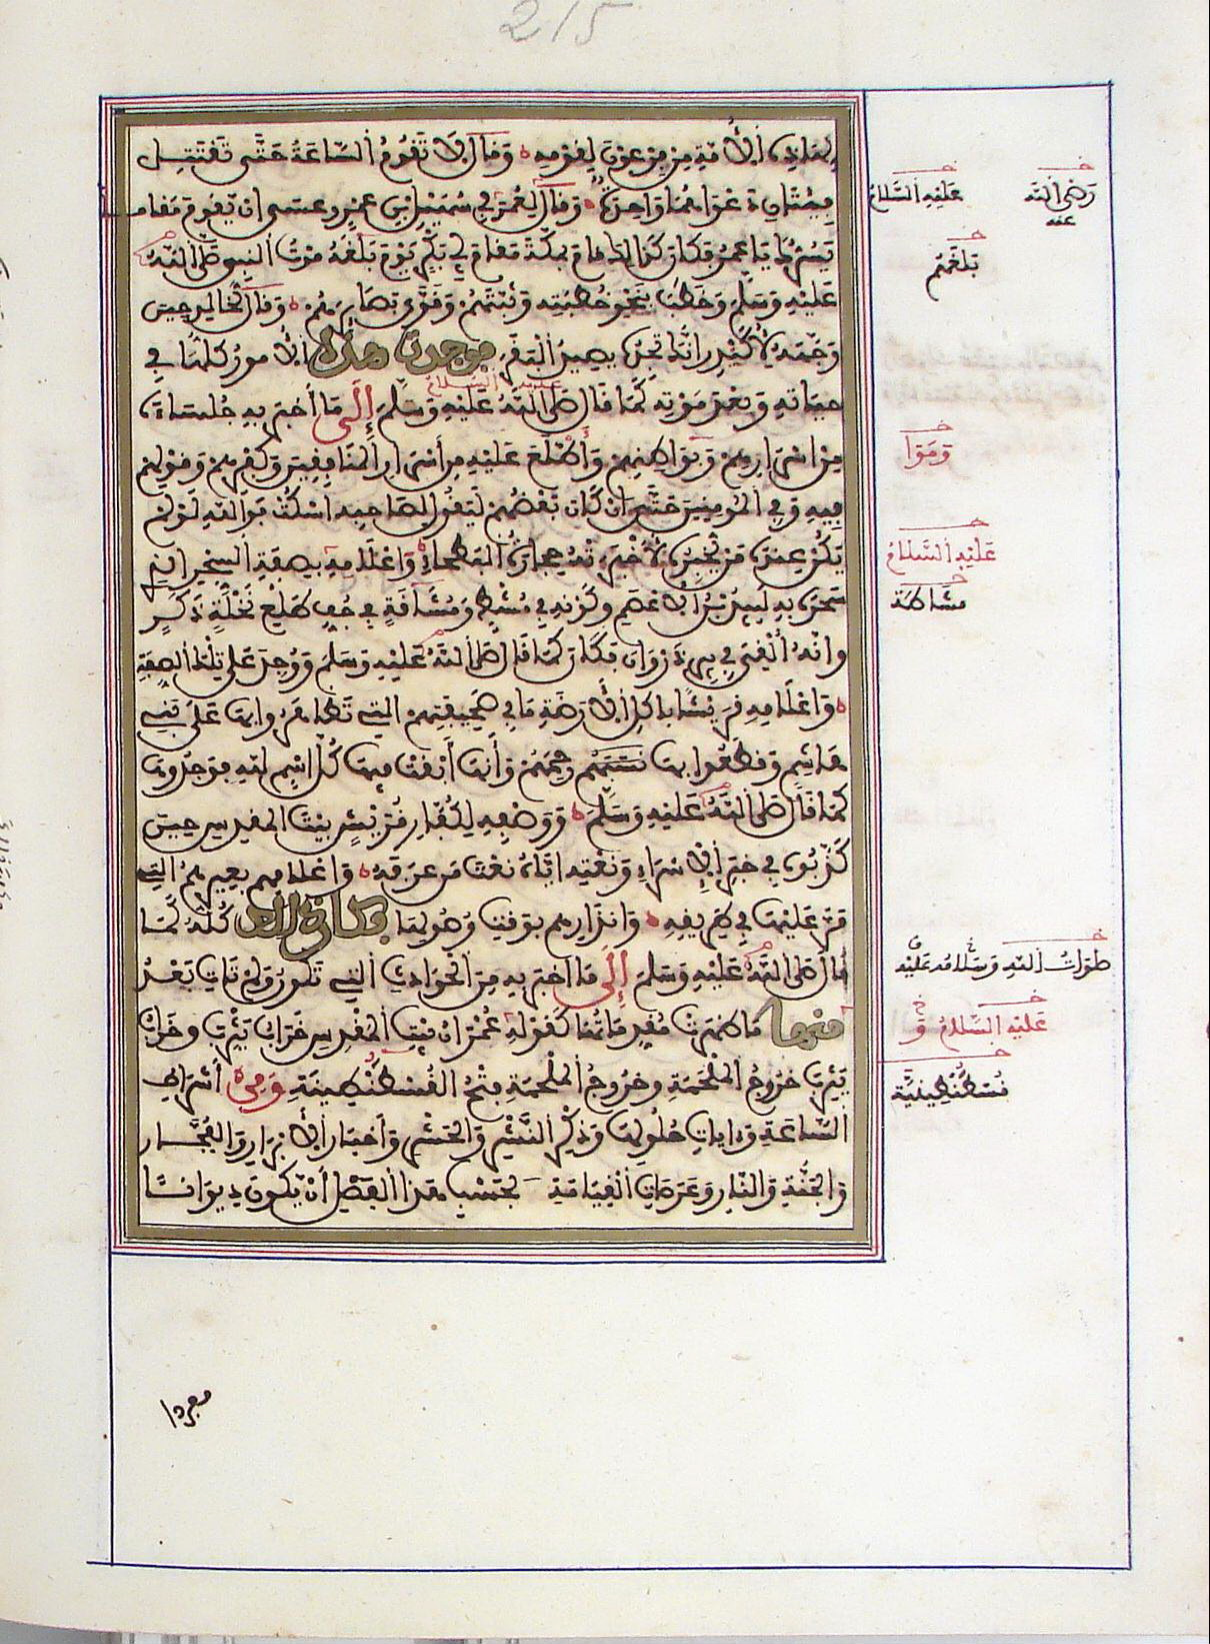 215
لهذه الأمة من فرعون لقومه وقال لا تقوم الساعة حتى تقتتل
فئتان دعواهما واحدة وقال لعمر في سهيل بن عمرو عسى ان يقوم مقاما
يسرك يا عمر فكان كذلك قام بمكة مقام أبي بكر يوم بلغه موت النبي صلى الله
عليه وسلم وخطب بنحو خطبته وثبتهم وقوى بصائرهم وقال لخالد حين
وجهه لأكيدر انك تجده يصيد البقر فوجدت هذه الأمور كلها في
عليه السلام
حياته وبعد موته كما قال صلى الله عليه وسلم إلى ما أخبر به جلساءه
من اسرارهم وبواطنهم وأطلع عليه من أسرار المنافقين وكفرهم وقولهم
فيه وفي المومنين حتى ان كان بعضهم ليقول لصاحبه اسكت فوالله لو لم
يكن عنده من يخبره لأخبرته حجارة البطحاء واعلامه بصفة السحر الذي
سحره به لبيد بن الأعصم وكونه في مشط ومشاقة في جف طلع نخلة ذكر
وانه ألقي في بير ذروان فكان كما قال صلى الله عليه وسلم ووجد على تلك الصفة
واعلامه قريشا باكل الأرضة ما في صحيفتهم التي تظاهروا بها على بني
هاشم وقطعوا بها نسبهم رحمهم وأنها أبقت فيها كل اسم لله فوجدوها
كما قال صلى الله عليه وسلم ووصفه لكفار قريش بيت المقدس حين
كذبوه في خبر الإسراء ونعته اياه نعت من عرفه واعلامهم بعيرهم التي
مر عليها في طريقه وانذارهم بوقت وصولها فكان ذلك كله كما
قال صلى الله عليه وسلم إلى ما اخبر به من الحوادث التي تكون ولم تات بعد
منها ما ظهرت مقدماتها كقوله عمران بيت المقدس خراب يثرب وخراب
يثرب خروج الملحمة وخروج الملحمة فتح القسطنطينية ومن أشراط
الساعة وايات حلولها وذكر النشر والحشر وأخبار الأبرار والفجار
والجنة والنار وعرصات القيامة وبحسب هذا الفصل أن يكون ديوانا
رضي الله عنه
عليه السلام
بلغهم
وهموا
عليه السلام
مشاطة
صلوات الله وسلامه عليه
عليه السلام
قسطنطينية
مفردا